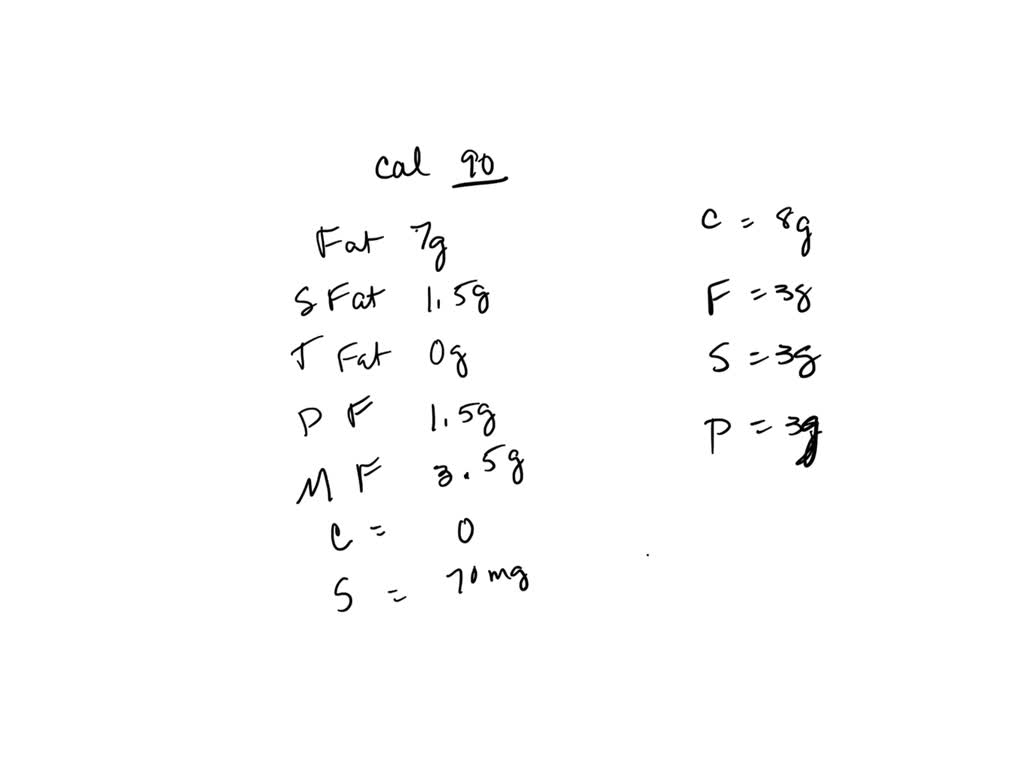 Cal 90
Fat 7g
S Fat 1.5g
T Fat 0g
P F 1.5g
M F 3.5g
C = 0
S = 70mg
C = 8g
F = 3g
S = 3g
P = 3g